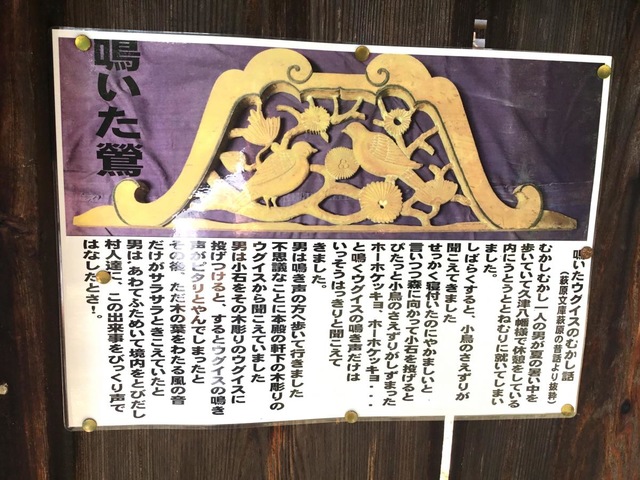 鳴いた鶯
鳴いたウグイスのむかし話
(萩原文庫萩原の昔話より抜粋)
むかしむかし一人の男が夏の暑い中を
歩いていて久津八幡様で休憩をしている
内にうとうととねむりに就いてしまい
ました。
しばらくすると、小鳥のさえずりが
聞こえてきました
せっかく寝付いたのにやかましいと
言いつつ森に向かって小石を投げると
ぴたっと小鳥のさえずりがしずまった
ホーホケッキョ、ホーホケッキョ・・・
と鳴くウグイスの鳴き声だけは
いっそうはっきりと聞こえて
きました。
男は鳴き声の方へ歩いて行きました
不思議なことに本殿の軒下の木彫りの
ウグイスから聞こえていました
男は小石をその木彫りのウグイスに
投げつけると、するとウグイスの鳴き
声がピタリとやんでしまったと
その後、ただ木の葉をわたる風の音
だけがサラサラときこえていたと
男は あわてふためいて境内をとびだし
村人達に、この出来事をびっくり声で
はなしたとさ!。